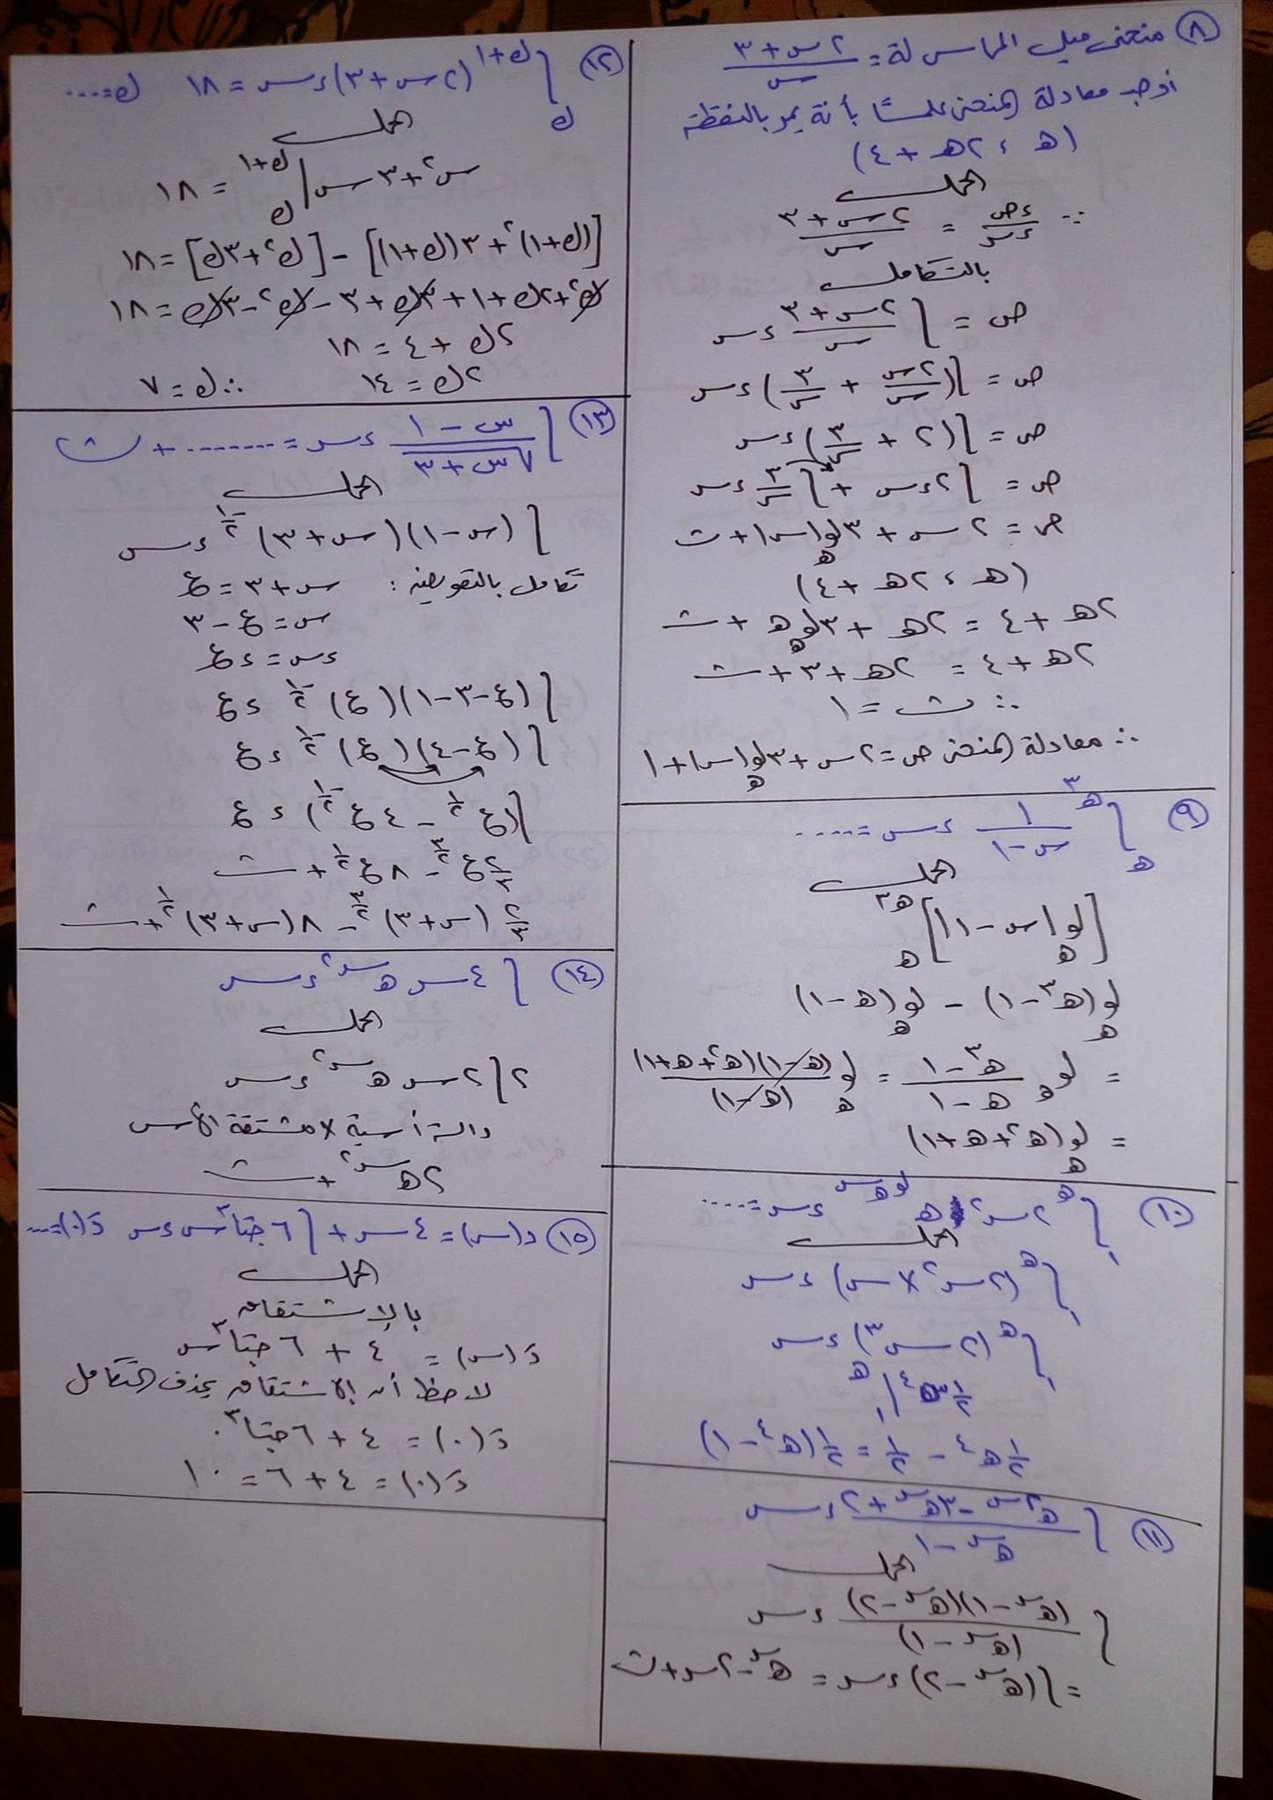 ٨ منحنى ميل المماس له = (٢س + ٣)/س
أوجد معادلة المنحنى علمًا بأنة يمر بالنقطة
(ه ، ٢ه + ٤)
الحل
∵ ءص/ءس = (٢س + ٣)/س
بالتكامل
ص = ∫ (٢س + ٣)/س ءس
ص = ∫(٢س/س + ٣/س) ءس
ص = ∫(٢ + ٣/س) ءس
ص = ∫٢ءس + ∫٣/س ءس
ص = ٢س + ٣لو_ه|س| + ث
(ه ، ٢ه + ٤)
٢ه + ٤ = ٢ه + ٣لو_ه ه + ث
٢ه + ٤ = ٢ه + ٣ + ث
∴ ث = ١
∴ معادلة المنحنى ص = ٢س + ٣لو_ه|س| + ١
٩ ∫_ه^ه٣ ١/(س - ١) ءس = ....
الحل
[لو_ه|س - ١|]_ه^ه٣
لو_ه(ه^٣ - ١) - لو_ه(ه - ١)
= لو_ه (ه^٣ - ١)/(ه - ١) = لو_ه (ه - ١)(ه^٢ + ه + ١)/(ه - ١)
= لو_ه(ه^٢ + ه + ١)
١٠ ∫_١^ه ٢س^٢ ه^لو_ه س ءس = ....
الحل
∫_١^ه (٢س^٢ × س) ءس
∫_١^ه (٢س^٣) ءس
١/٢ س^٤ |_١^ه
١/٢ ه^٤ - ١/٢ = ١/٢(ه^٤ - ١)
١١ ∫ (ه^٢س - ٣ه^س + ٢)/(ه^س - ١) ءس
الحل
∫ (ه^س - ١)(ه^س - ٢)/(ه^س - ١) ءس
= ∫(ه^س - ٢) ءس = ه^س - ٢س + ث
١٢ ∫_ك^ك+١ (٢س + ٣) ءس = ١٨ ك = ....
الحل
س^٢ + ٣س |_ك^ك+١ = ١٨
[(ك+١)^٢ + ٣(ك+١)] - [ك^٢ + ٣ك] = ١٨
ك^٢ + ٢ك + ١ + ٣ك + ٣ - ك^٢ - ٣ك = ١٨
٢ك + ٤ = ١٨
٢ك = ١٤ ∴ ك = ٧
١٣ ∫ (س - ١)/√(س + ٣) ءس = ........ + ث
الحل
∫ (س - ١)(س + ٣)^-١/٢ ءس
تكامل بالتعويض : س + ٣ = ع
س = ع - ٣
ءس = ءع
∫ (ع - ٣ - ١)(ع)^-١/٢ ءع
∫ (ع - ٤)(ع)^-١/٢ ءع
∫(ع^١/٢ - ٤ع^-١/٢) ءع
٢/٣ ع^٣/٢ - ٨ع^١/٢ + ث
٢/٣ (س + ٣)^٣/٢ - ٨(س + ٣)^١/٢ + ث
١٤ ∫ ٤س ه^س^٢ ءس
الحل
٢∫٢س ه^س^٢ ءس
دالة أسية × مشتقة الأس
٢ه^س^٢ + ث
١٥ د(س) = ٤س + ∫٦جتا^٣س ءس دَ(٠) = ....
الحل
بالإشتقاق
دَ(س) = ٤ + ٦جتا^٣س
لاحظ أن الإشتقاق يحذف التكامل
دَ(٠) = ٤ + ٦جتا^٣٠
دَ(٠) = ٤ + ٦ = ١٠